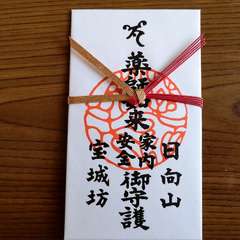 日向山
薬師如来家内安全御守護
宝城坊